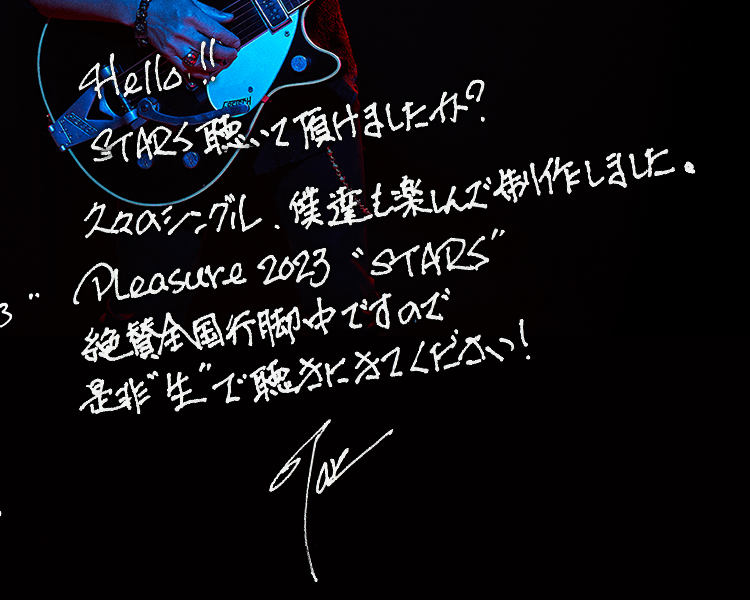 Hello!!
STARS 聴いて頂けましたか?
久々のシングル、僕達も楽しんで制作しました。
Pleasure 2023 "STARS"
3"
絶賛全国行脚中ですので
是非"生"で聴きにきてください!
Tak